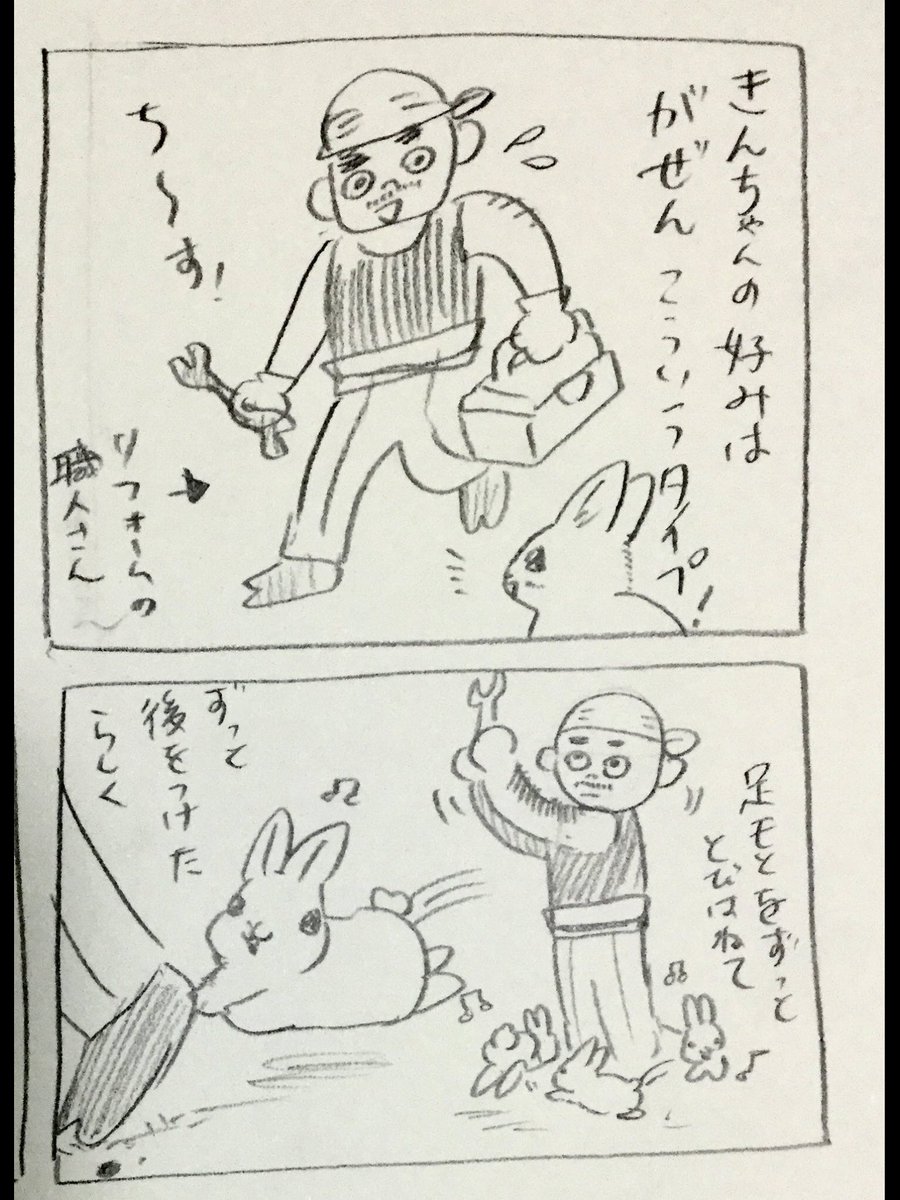 きんちゃんの好みは
がぜん こういうタイプ!
ち〜す!
リフォームの
職人さん
足もとをずっと
とびはねて
ずっと
後をつけた
らしく